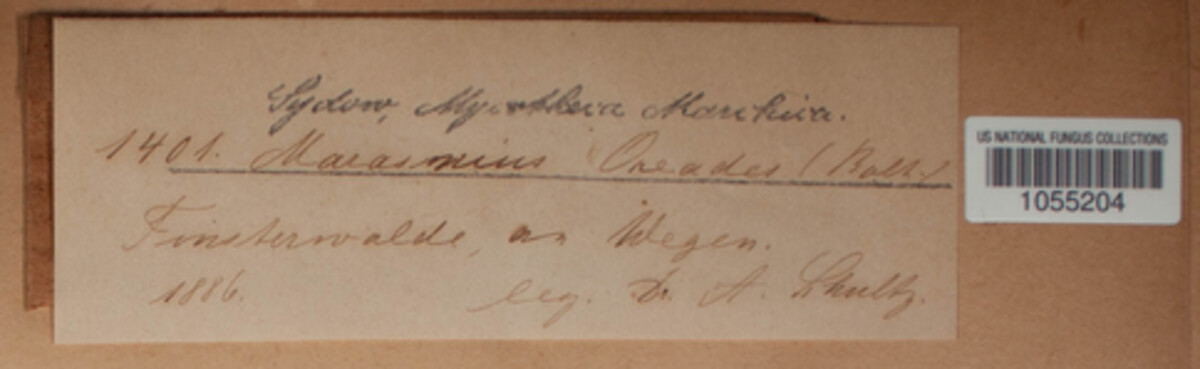 Sydow, Mycotheca Marchica.
1401. Marasmius Oreades (Bolt.)
Finsterwalde, an Wegen.
1886. leg. Dr. A. Schultz.
US NATIONAL FUNGUS COLLECTIONS
1055204